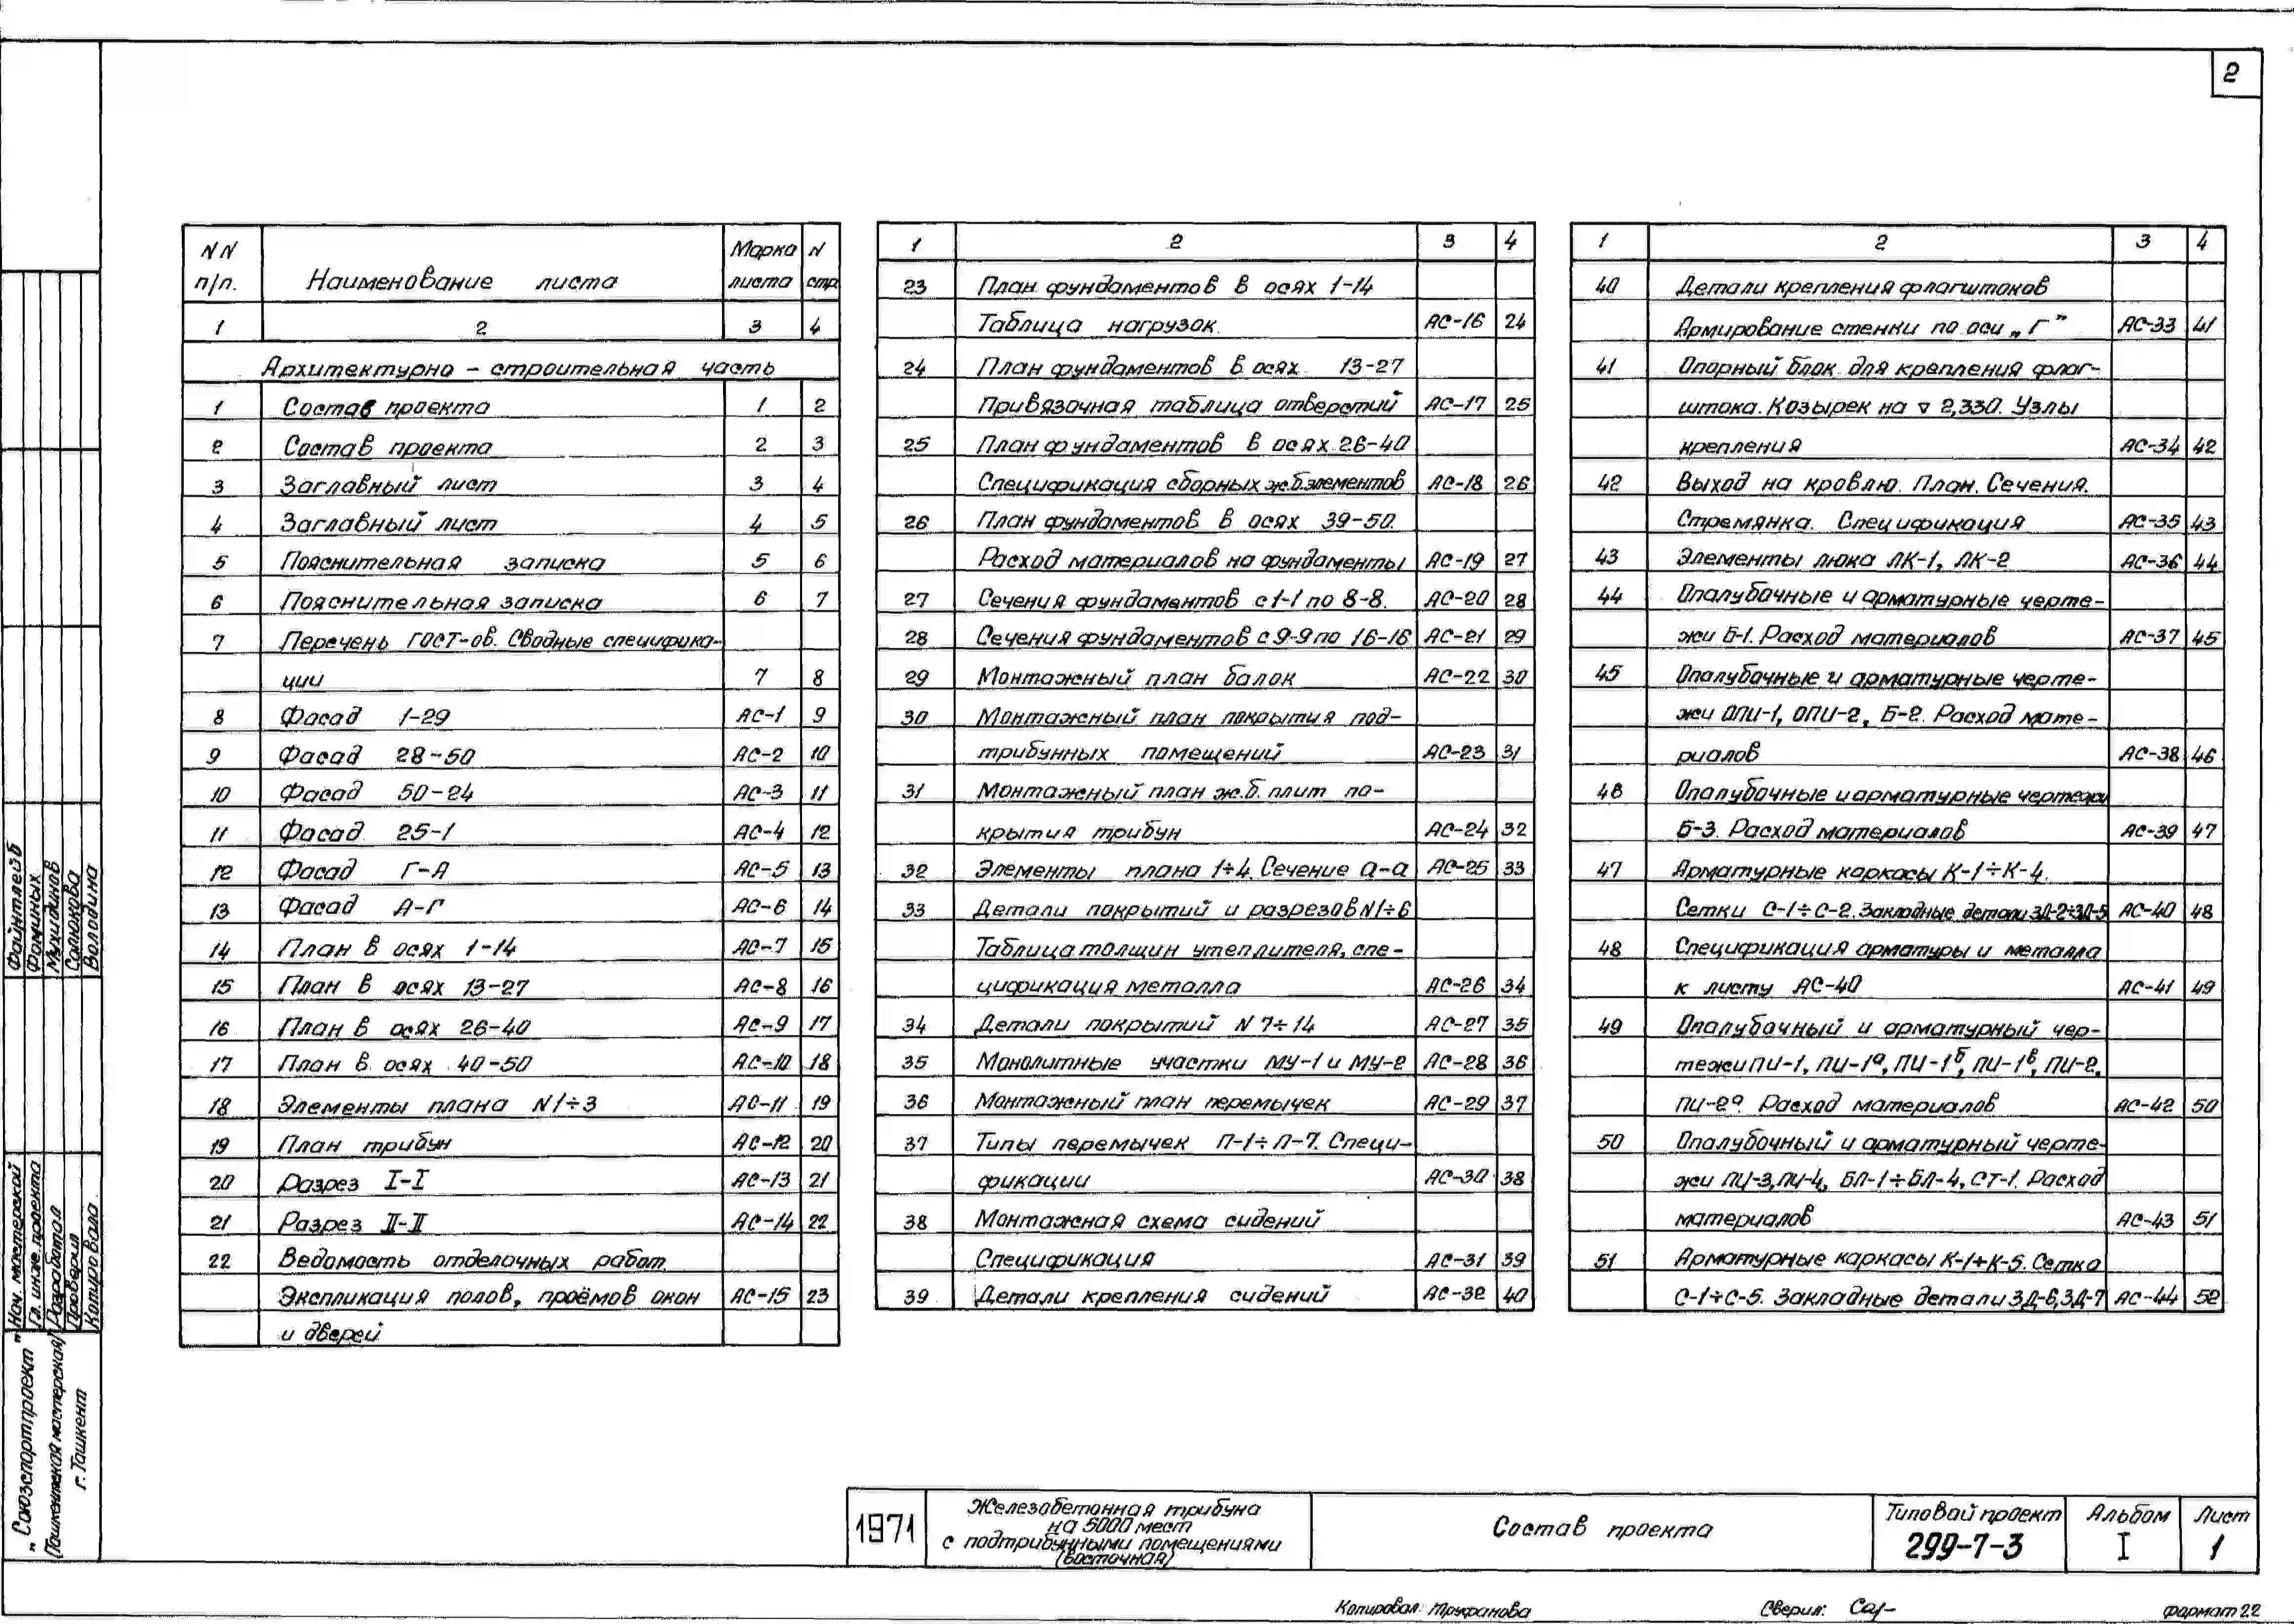 2
NN п/п. Наименование листа Марка листа N стр
1 2 3 4
Архитектурно - строительная часть
1 Состав проекта 1 2
2 Состав проекта 2 3
3 Заглавный лист 3 4
4 Заглавный лист 4 5
5 Пояснительная записка 5 6
6 Пояснительная записка 6 7
7 Перечень ГОСТ-ов. Сводные специфика-
ции 7 8
8 Фасад 1-29 АС-1 9
9 Фасад 28-50 АС-2 10
10 Фасад 50-24 АС-3 11
11 Фасад 25-1 АС-4 12
12 Фасад Г-А АС-5 13
13 Фасад А-Г АС-6 14
14 План в осях 1-14 АС-7 15
15 План в осях 13-27 АС-8 16
16 План в осях 26-40 АС-9 17
17 План в осях 40-50 АС-10 18
18 Элементы плана N1÷3 АС-11 19
19 План трибун АС-12 20
20 Разрез I-I АС-13 21
21 Разрез II-II АС-14 22
22 Ведомость отделочных работ.
Экспликация полов, проёмов окон АС-15 23
и дверей
1 2 3 4
23 План фундаментов в осях 1-14
Таблица нагрузок. АС-16 24
24 План фундаментов в осях 13-27
Привязочная таблица отверстий АС-17 25
25 План фундаментов в осях 26-40
Спецификация сборных ж.б.элементов АС-18 26
26 План фундаментов в осях 39-50.
Расход материалов на фундаменты АС-19 27
27 Сечения фундаментов с 1-1 по 8-8. АС-20 28
28 Сечения фундаментов с 9-9 по 16-16 АС-21 29
29 Монтажный план балок АС-22 30
30 Монтажный план покрытия под-
трибунных помещений АС-23 31
31 Монтажный план ж.б. плит по-
крытия трибун АС-24 32
32 Элементы плана 1÷4. Сечение а-а АС-25 33
33 Детали покрытий и разрезов N1÷6
Таблица толщин утеплителя, спе-
цификация металла АС-26 34
34 Детали покрытий N 7÷14 АС-27 35
35 Монолитные участки МУ-1 и МУ-2 АС-28 36
36 Монтажный план перемычек АС-29 37
37 Типы перемычек П-1÷П-7. Специ-
фикации АС-30 38
38 Монтажная схема сидений
Спецификация АС-31 39
39 Детали крепления сидений АС-32 40
1 2 3 4
40 Детали крепления флагштоков
Армирование стенки по оси „Г" АС-33 41
41 Опорный блок для крепления флаг-
штока. Козырек на ▽ 2,330. Узлы
крепления АС-34 42
42 Выход на кровлю. План. Сечения.
Стремянка. Спецификация АС-35 43
43 Элементы люка ЛК-1, ЛК-2 АС-36 44
44 Опалубочные и арматурные черте-
жи Б-1. Расход материалов АС-37 45
45 Опалубочные и арматурные черте-
жи ОПИ-1, ОПИ-2, Б-2. Расход мате-
риалов АС-38 46
46 Опалубочные и арматурные чертежи
Б-3. Расход материалов АС-39 47
47 Арматурные каркасы К-1÷К-4.
Сетки С-1÷С-2. Закладные детали ЗД-2÷ЗД-5 АС-40 48
48 Спецификация арматуры и металла
к листу АС-40 АС-41 49
49 Опалубочный и арматурный чер-
тежи ПИ-1, ПИ-1а, ПИ-1б, ПИ-1в, ПИ-2,
ПИ-2а. Расход материалов АС-42 50
50 Опалубочный и арматурный черте-
жи ПИ-3, ПИ-4, БЛ-1÷БЛ-4, СТ-1. Расход
материалов АС-43 51
51 Арматурные каркасы К-1÷К-5. Сетка
С-1÷С-5. Закладные детали ЗД-6, ЗД-7 АС-44 52
Нач. мастерской Файнтлейб
Гл. инж. проекта Фоминых
Разработал Мухидинов
Проверил Салюкова
Копировала Володина
"Союзспортпроект"
(Ташкентская мастерская)
г. Ташкент
1971
Железобетонная трибуна
на 5000 мест
с подтрибунными помещениями
(восточная)
Состав проекта
Типовой проект
299-7-3
Альбом
I
Лист
1
Копировал: Труфанова Сверил: формат 22